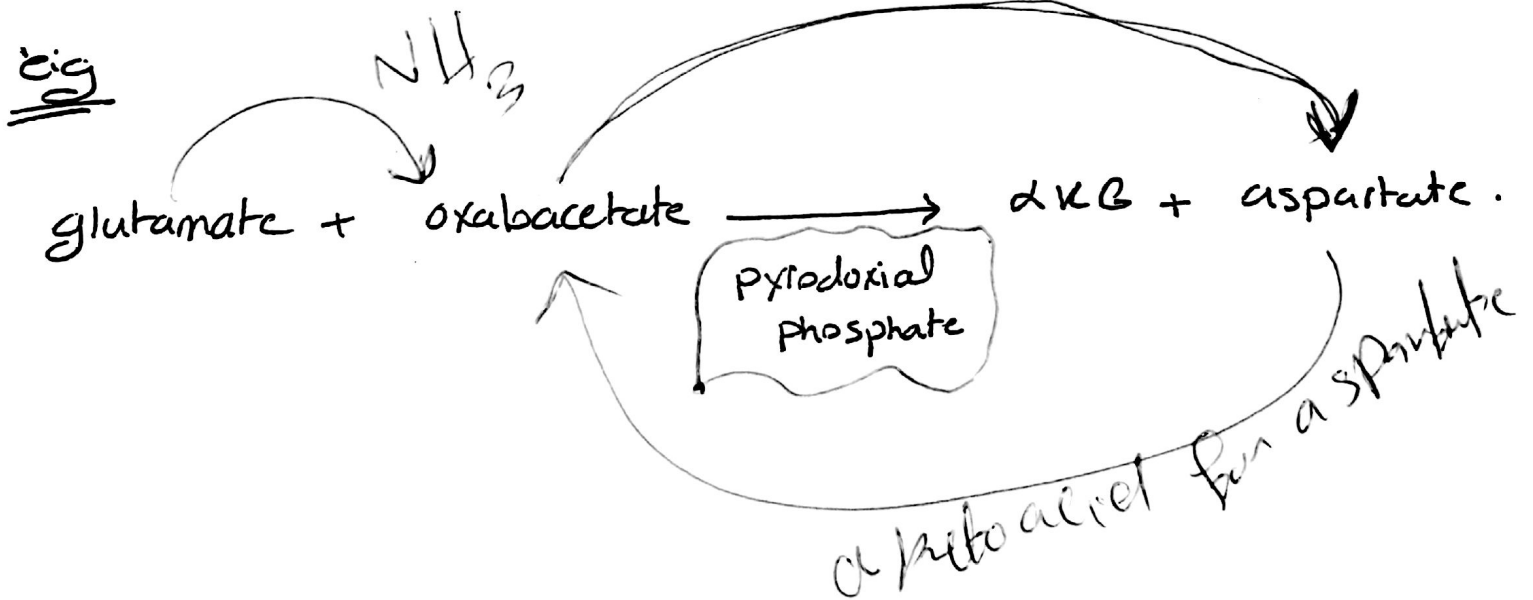 eig
NH3
glutamate + oxaloacetate → αKG + aspartate.
pyrodoxial
phosphate
α keto acid for aspartate